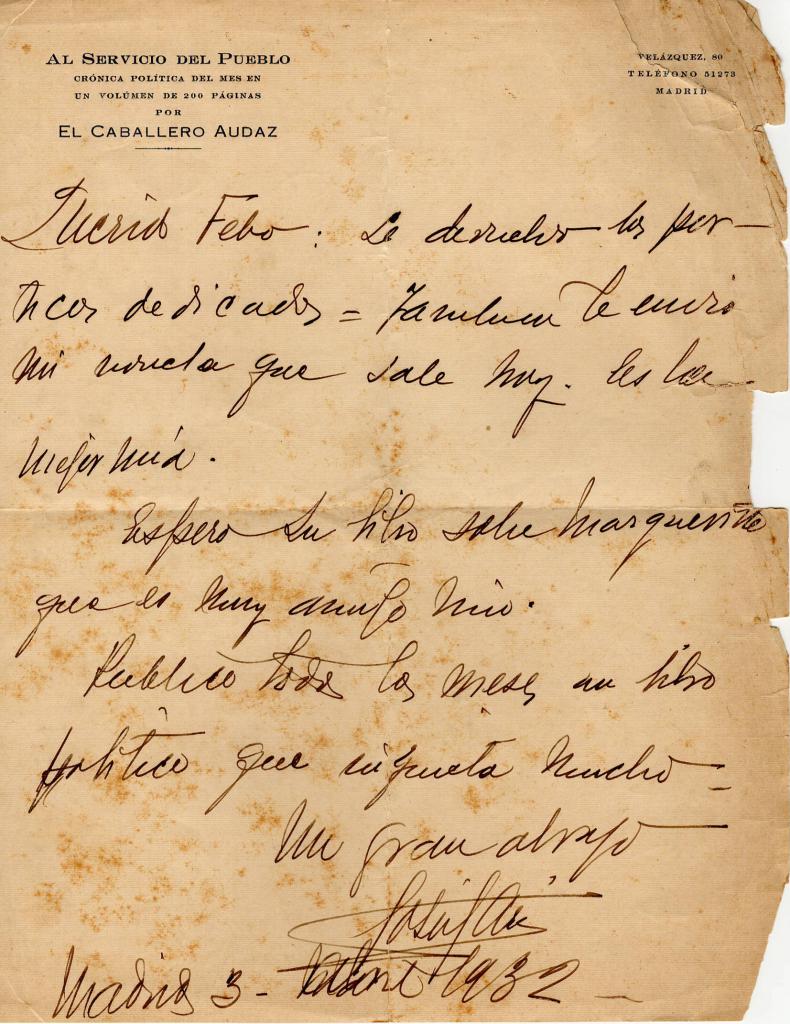 AL SERVICIO DEL PUEBLO
CRÓNICA POLÍTICA DEL MES EN
UN VOLÚMEN DE 200 PÁGINAS
POR
EL CABALLERO AUDAZ
VELÁZQUEZ, 80
TELÉFONO 51273
MADRID
Querido Febo: Le devuelvo los pór-
ticos dedicados = Tambien le envio
mi novela que sale hoy. Es la
mejor mía.
Espero su libro sobre
que es muy amigo mio.
Publico todos los meses un libro
politico que mucho =
Un gran abrazo
Madrid 3 - 1932 -